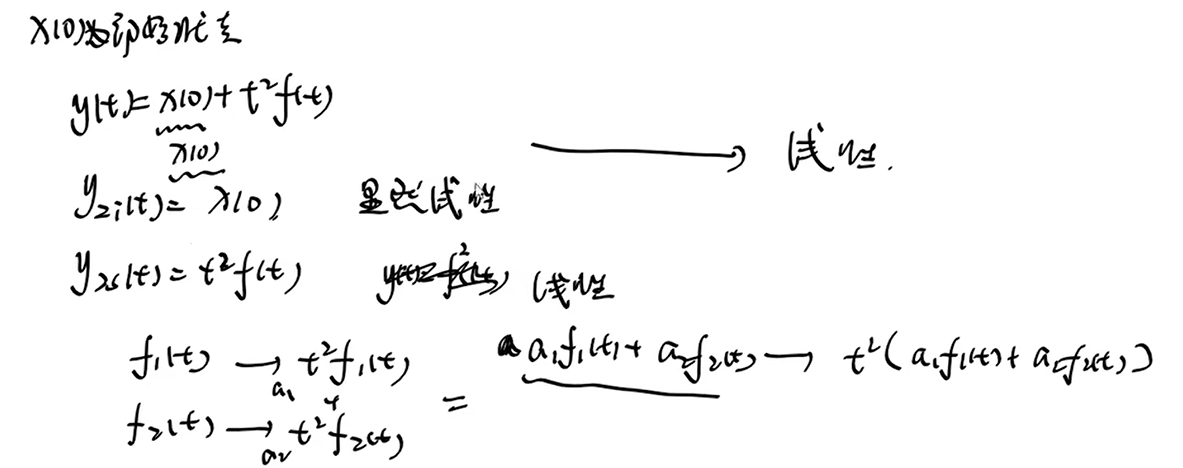 x(0)为初始状态
y(t)=x(0)+t²f(t) → 线性.
x(0)
yzi(t)=x(0) 显然线性
yzs(t)=t²f(t) 线性
f₁(t) → t²f₁(t) a₁f₁(t)+a₂f₂(t) → t²(a₁f₁(t)+a₂f₂(t))
a₁ + =
f₂(t) → t²f₂(t)
a₂